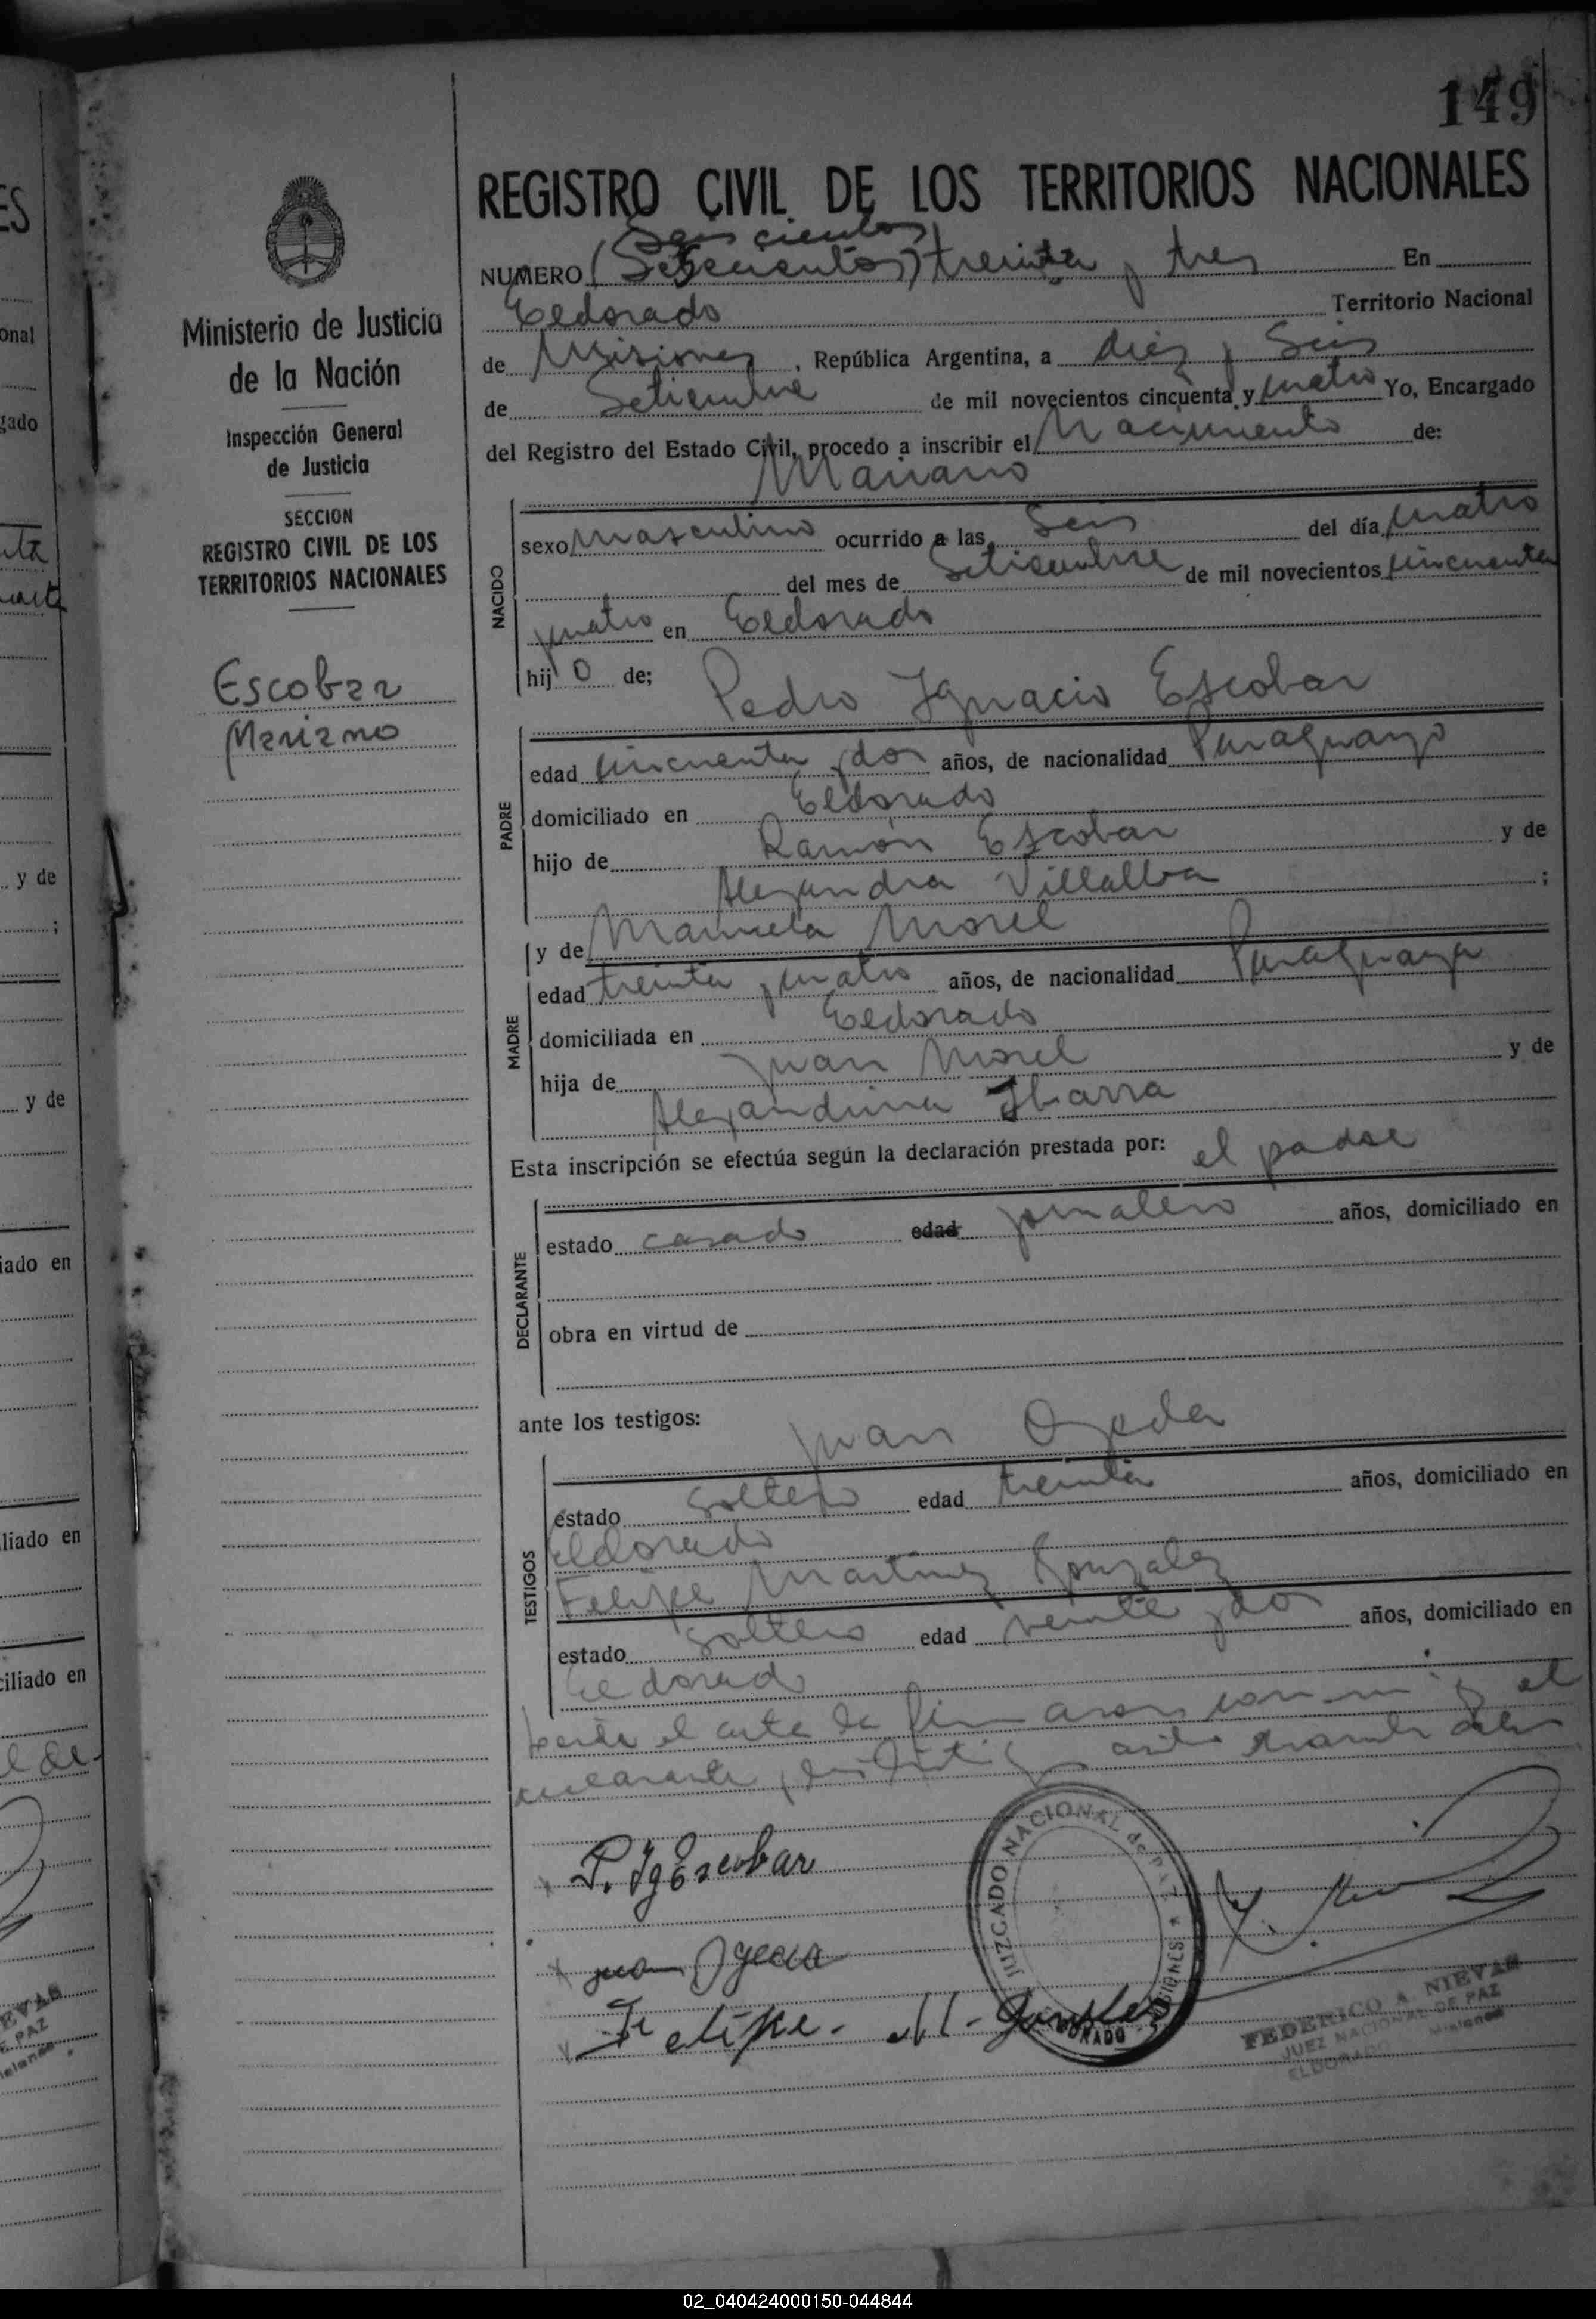 149
REGISTRO CIVIL DE LOS TERRITORIOS NACIONALES
Seis cientos
NUMERO (Setecientos) treinta y tres En
Eldorado Territorio Nacional
de Misiones, República Argentina, a diez y Seis
de Setiembre de mil novecientos cincuenta y cuatro Yo, Encargado
del Registro del Estado Civil, procedo a inscribir el Nacimiento de:
Mariano
NACIDO
sexo masculino ocurrido a las Seis del día cuatro
del mes de Setiembre de mil novecientos cincuenta
y cuatro en Eldorado
hij o de; Pedro Ignacio Escobar
PADRE
edad cincuenta y dos años, de nacionalidad Paraguayo
domiciliado en Eldorado
hijo de Ramón Escobar y de
Alejandra Villalba ;
y de Manuela Morel
MADRE
edad treinta y cuatro años, de nacionalidad Paraguaya
domiciliada en Eldorado
hija de Juan Morel y de
Alejandrina Ibarra
Esta inscripción se efectúa según la declaración prestada por: el padre
DECLARANTE
estado casado edad jornalero años, domiciliado en
obra en virtud de
ante los testigos: Juan Ojeda
TESTIGOS
estado soltero edad treinta años, domiciliado en
Eldorado
Felipe Martinez Gonzalez
estado soltero edad veinte y dos años, domiciliado en
Eldorado
el acta la firmaron conmigo el
P. Ig Escobar
Juan Ojeda
Felipe. M. Gonzalez
JUZGADO NACIONAL de PAZ * MISIONES
ELDORADO
FEDERICO A. NIEVAS
JUEZ NACIONAL DE PAZ
ELDORADO Misiones
Ministerio de Justicia
de la Nación
Inspección General
de Justicia
SECCION
REGISTRO CIVIL DE LOS
TERRITORIOS NACIONALES
Escobar
Mariano
ES
onal
gado
y de
;
y de
iado en
liado en
ciliado en
EVAS
E PAZ
02_040424000150-044844